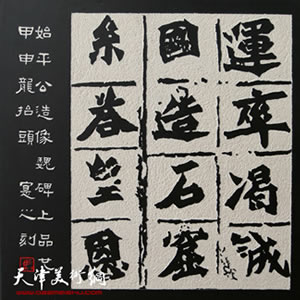 運卒渴誠
國造石窟
糸答皇恩
始平公造像魏碑上品
甲申龍抬頭
刻
天津美術網